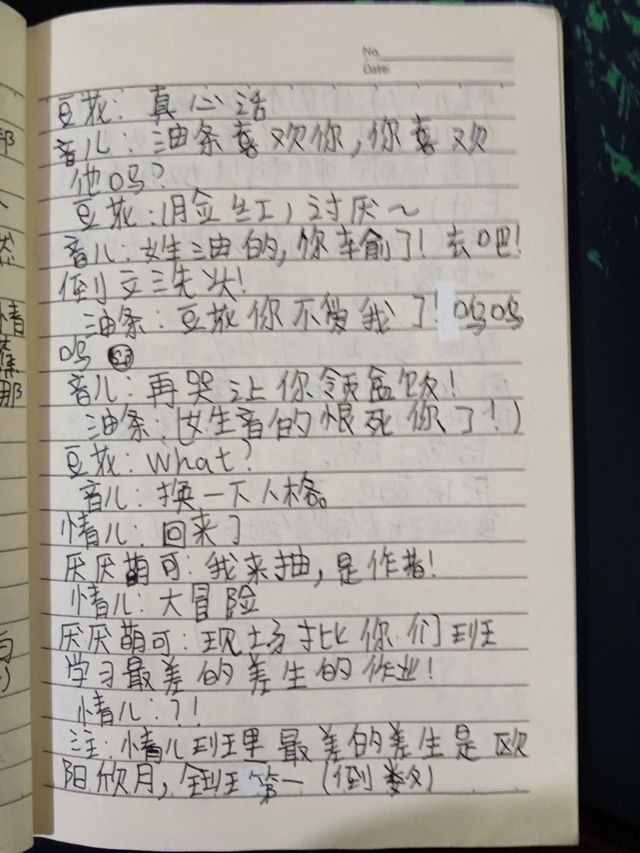 No.
Date:
豆花：真心话
音儿：油条喜欢你，你喜欢
他吗？
豆花：（脸红）讨厌～
音儿：女生油的，你幸偷了！去吧！
倒立三洗头！
油条：豆花你不爱我了！呜呜
呜
音儿：再哭让你领盒饭！
油条：（女生音的恨死你了！）
豆花：what？
音儿：换一下人格。
情儿：回来了
厌厌萌可：我来抽，是作者！
情儿：大冒险
厌厌萌可：现场批你们班
学习最差的差生的作业！
情儿：？！
注：情儿班里最差的差生是欧
阳欣月，全班第一（倒数）
那
情
那